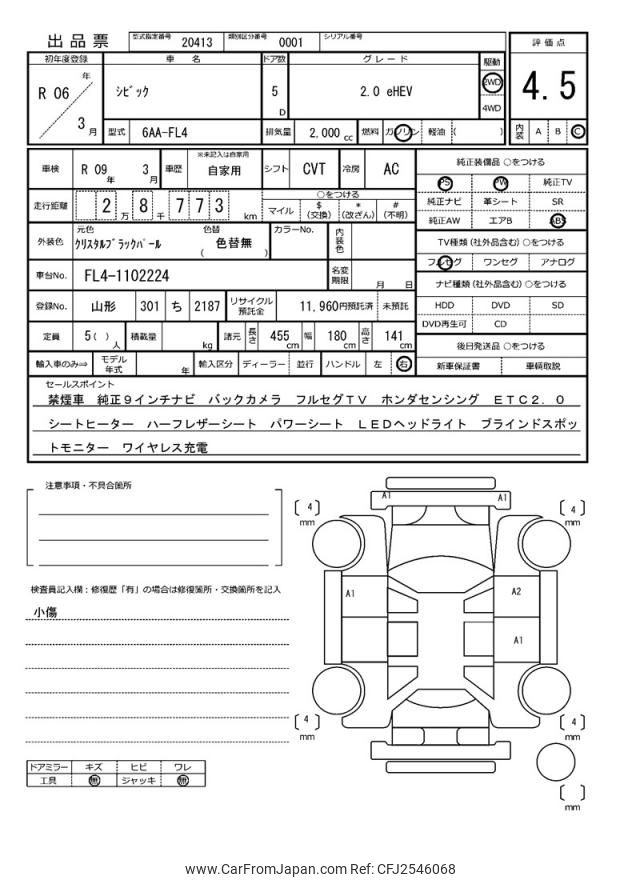 出品票
型式指定番号 20413 類別区分番号 0001 シリアル番号
評価点
4.5
初年度登録 車名 ドア数 グレード 駆動
R 06 年 3 月
シビック 5 D 2.0 eHEV 2WD
4WD
型式 6AA-FL4 排気量 2,000 cc 燃料 ガソリン 軽油 ( )
内装 A B C
車検 R 09 年 3 月 車歴 ※未記入は自家用 自家用 シフト CVT 冷房 AC
純正装備品 ○をつける
PS PW 純正TV
純正ナビ 革シート SR
純正AW エアB ABS
走行距離 2 万 8 千 7 7 3 km
○をつける
マイル $ (交換) * (改ざん) # (不明)
外装色 元色 クリスタルブラックパール 色替 ( 色替無 ) カラーNo. 内装色
TV種類 (社外品含む) ○をつける
フルセグ ワンセグ アナログ
車台No. FL4-1102224 名変期限 月 日
ナビ種類 (社外品含む) ○をつける
HDD DVD SD
DVD再生可 CD
登録No. 山形 301 ち 2187 リサイクル預託金 11,960円預託済 未預託
定員 5 ( ) 人 積載量 kg 諸元 長さ 455 cm 幅 180 cm 高さ 141 cm
後日発送品 ○をつける
新車保証書 車輌取説
輸入車のみ⇒ モデル年式 年 輸入区分 ディーラー 並行 ハンドル 左 右
セールスポイント
禁煙車 純正9インチナビ バックカメラ フルセグTV ホンダセンシング ETC2.0
シートヒーター ハーフレザーシート パワーシート LEDヘッドライト ブラインドスポッ
トモニター ワイヤレス充電
注意事項・不具合箇所
検査員記入欄:修復歴「有」の場合は修復箇所・交換箇所を記入
小傷
ドアミラー キズ ヒビ ワレ
工具 無 ジャッキ 無
A1 A1
[ 4 ] mm
[ 4 ] mm
A1 A2
A1
[ 4 ] mm
[ 4 ] mm
[ ] mm
www.CarFromJapan.com Ref: CFJ2546068